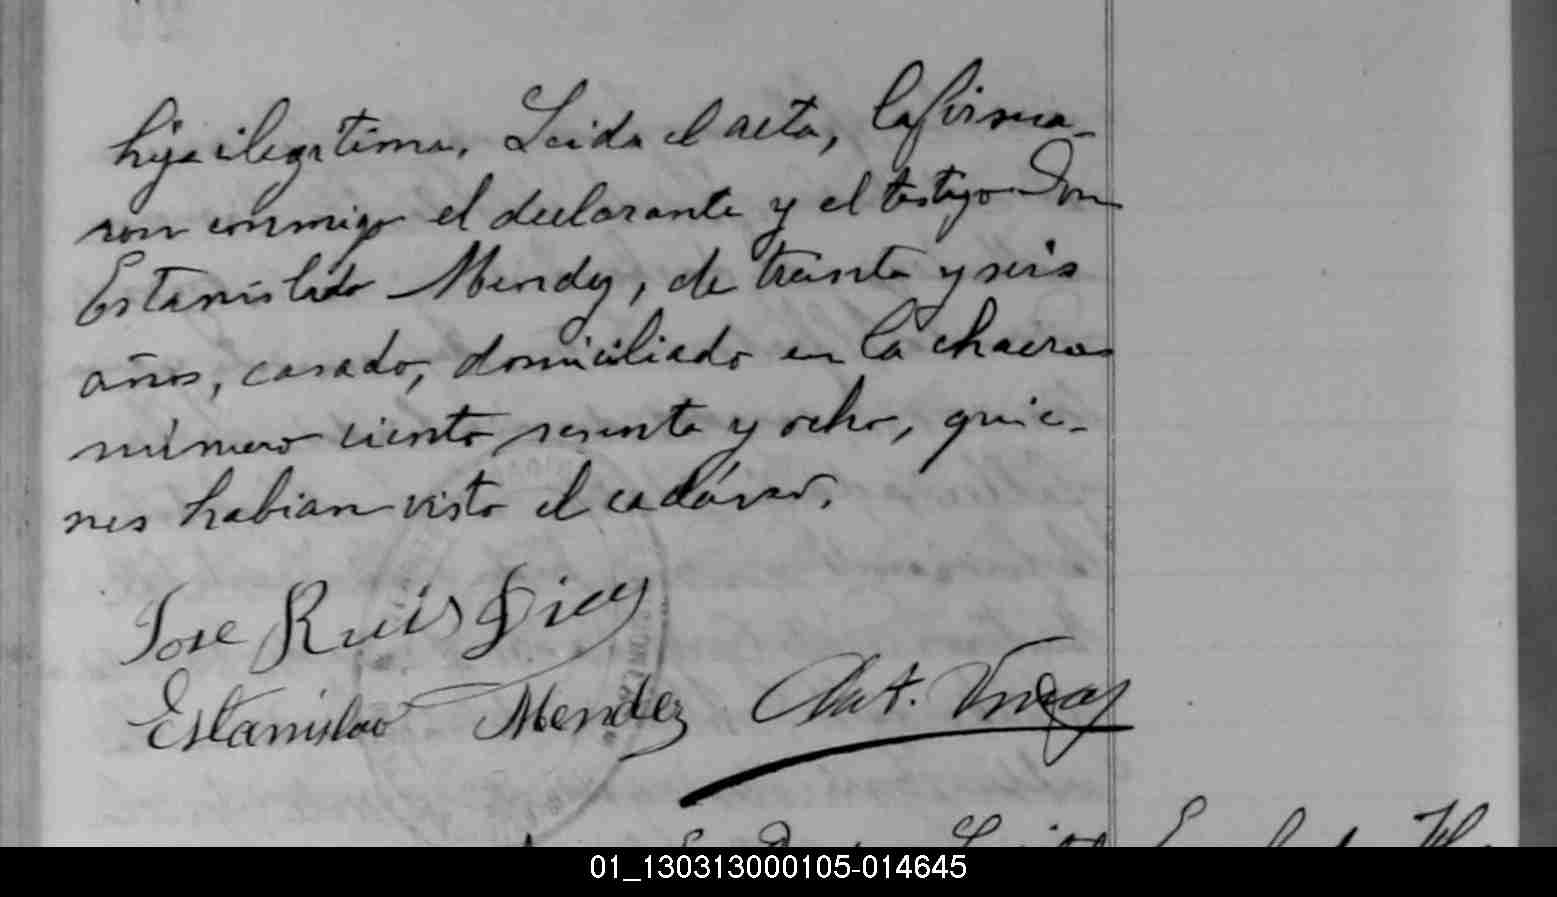 hija ilegitima. Leida el acta, la firma-
ron conmigo el declarante y el testigo Don
Estanislado Mendez, de treinta y seis
años, casado, domiciliado en la chacra
número ciento sesenta y ocho, quie-
nes habian visto el cadáver.
Jose Ruis Diez
Estanislao Mendez Ant.
01_130313000105-014645